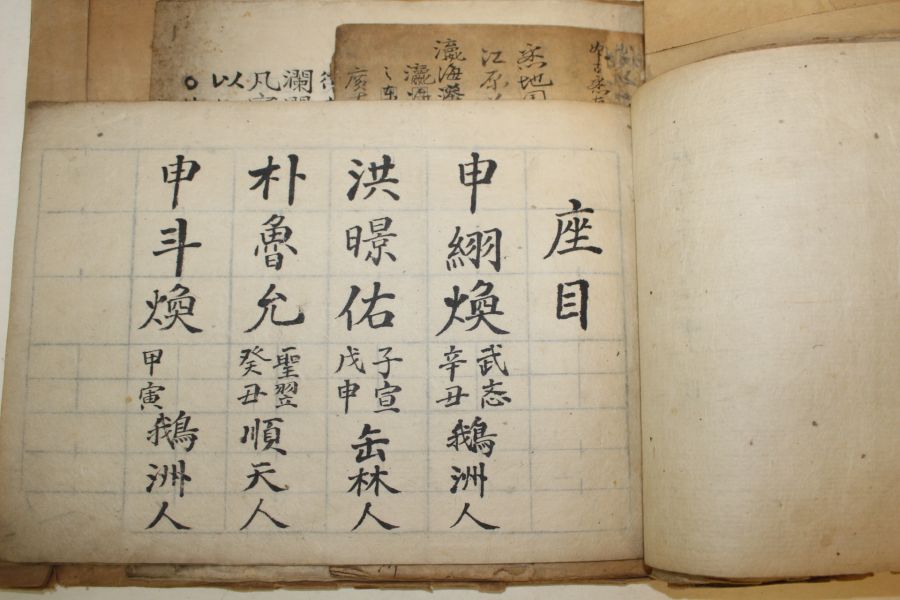 座目
申煥 武态 辛丑 鵝洲人
洪暻佑 子宣 戊申 缶林人
朴魯允 聖翌 癸丑 順天人
申斗煥 甲寅 鵝洲人
地
江原
瀛海
瀾
凡
以